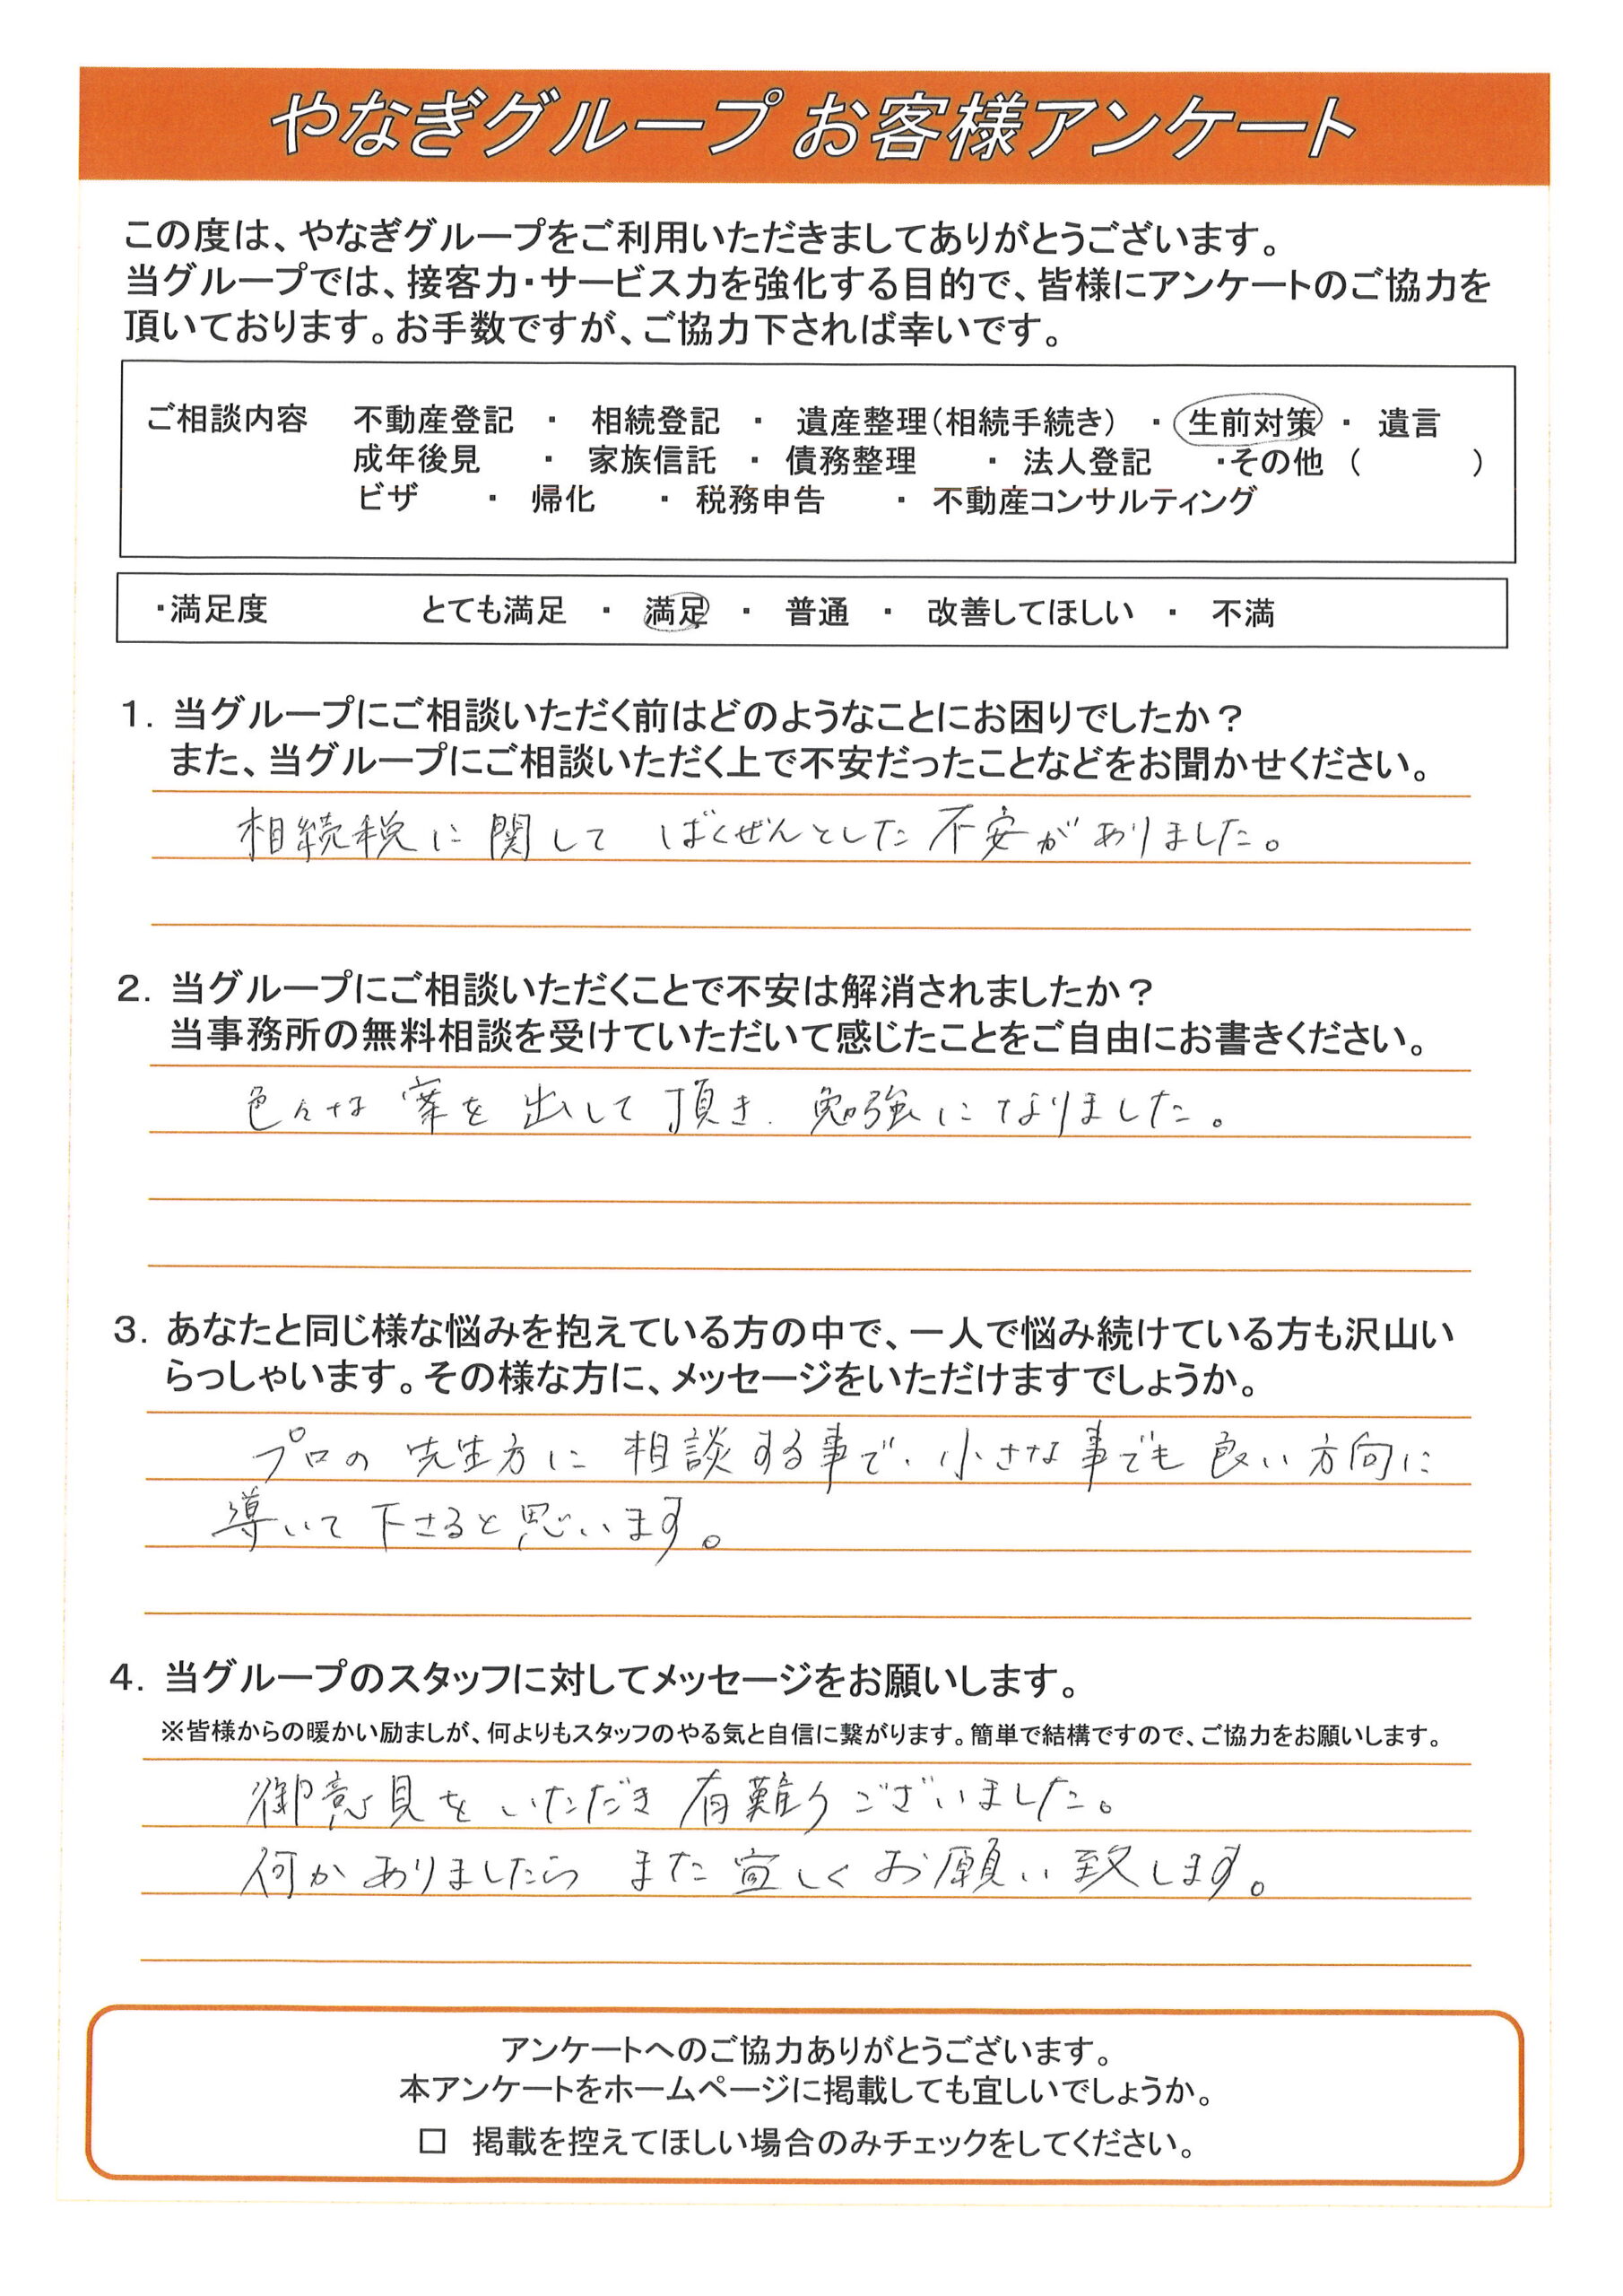 やなぎグループ お客様アンケート
この度は、やなぎグループをご利用いただきましてありがとうございます。
当グループでは、接客力・サービス力を強化する目的で、皆様にアンケートのご協力を
頂いております。お手数ですが、ご協力下されば幸いです。
ご相談内容 不動産登記 ・ 相続登記 ・ 遺産整理(相続手続き) ・ 生前対策 ・ 遺言
成年後見 ・ 家族信託 ・ 債務整理 ・ 法人登記 ・その他 ( )
ビザ ・ 帰化 ・ 税務申告 ・ 不動産コンサルティング
・満足度 とても満足 ・ 満足 ・ 普通 ・ 改善してほしい ・ 不満
1. 当グループにご相談いただく前はどのようなことにお困りでしたか?
また、当グループにご相談いただく上で不安だったことなどをお聞かせください。
相続税に関して ばくぜんとした不安がありました。
2. 当グループにご相談いただくことで不安は解消されましたか?
当事務所の無料相談を受けていただいて感じたことをご自由にお書きください。
色々な案を出して頂き、勉強になりました。
3. あなたと同じ様な悩みを抱えている方の中で、一人で悩み続けている方も沢山い
らっしゃいます。その様な方に、メッセージをいただけますでしょうか。
プロの先生方に相談する事で、小さな事でも良い方向に
導いて下さると思います。
4. 当グループのスタッフに対してメッセージをお願いします。
※皆様からの暖かい励ましが、何よりもスタッフのやる気と自信に繋がります。簡単で結構ですので、ご協力をお願いします。
御意見をいただき有難うございました。
何かありましたら また宜しくお願い致します。
アンケートへのご協力ありがとうございます。
本アンケートをホームページに掲載しても宜しいでしょうか。
□ 掲載を控えてほしい場合のみチェックをしてください。